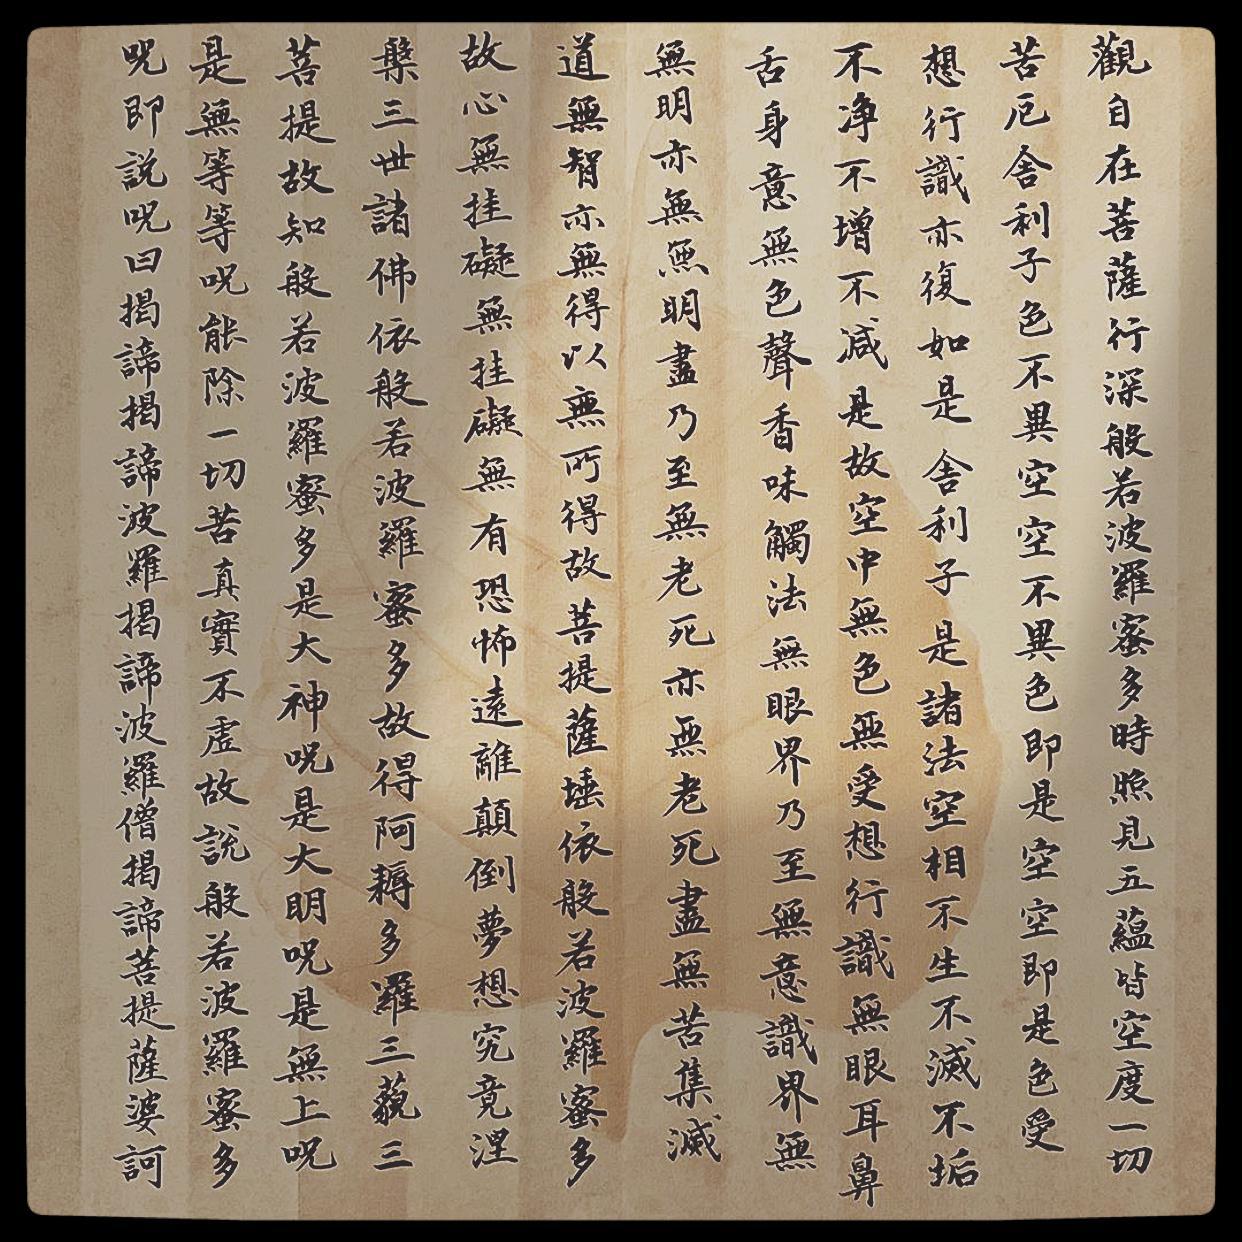 觀自在菩薩行深般若波羅蜜多時照見五蘊皆空度一切
苦厄舍利子色不異空空不異色即是空空即是色受
想行識亦復如是舍利子是諸法空相不生不滅不垢
不净不增不减是故空中無色無受想行識無眼耳鼻
舌身意無色聲香味觸法無眼界乃至無意識界無
無明亦無無明盡乃至無老死亦無老死盡無苦集滅
道無智亦無得以無所得故菩提薩埵依般若波羅蜜多
故心無挂礙無挂礙無有恐怖遠離顛倒夢想究竟涅
槃三世諸佛依般若波羅蜜多故得阿耨多羅三藐三
菩提故知般若波羅蜜多是大神呪是大明呪是無上呪
是無等等呪能除一切苦真實不虛故說般若波羅蜜多
呪即說呪曰揭諦揭諦波羅揭諦波羅僧揭諦菩提薩婆訶